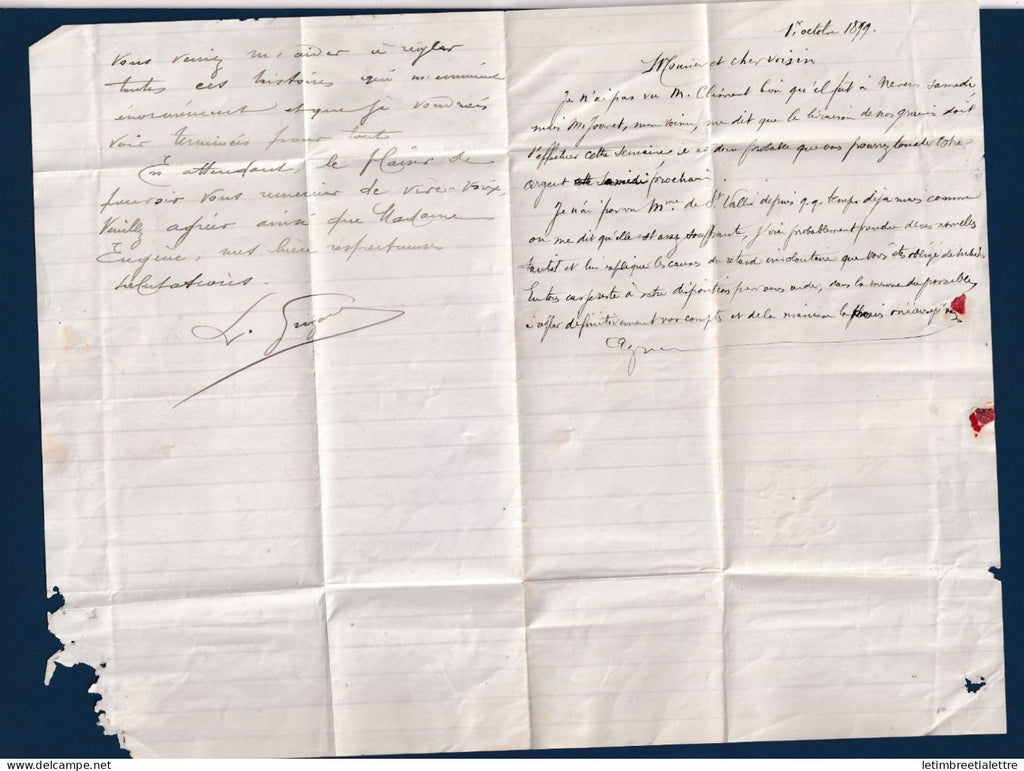 vous veniez m'aider à régler
toutes ces histoires qui m'ennuient
énormément et que je voudrais
voir terminées pour toute
En attendant, le plaisir de
pouvoir vous remercier de vive-voix,
Veuillez agréer ainsi que Madame
Eugène, mes bien respectueuses
salutations.
L.
1r octobre 1899.
Monsieur et cher voisin
Je n'ai pas vu M. Clément bien qu'il fut à Nevers samedi,
mais Mr Jouvet, mon voisin, me dit que la livraison de nos grains doit
s'effectuer cette semaine, il est donc probable que vous pourrez toucher votre
argent samedi prochain.
Je n'ai pas vu Mme de St Vallier depuis q.q. temps déjà mais comme
on me dit qu'elle est assez souffrante, j'irai probablement prendre de ses nouvelles
tantôt et lui expliquer les causes du retard involontaire que vous êtes obligé de
En tous cas je reste à votre disposition pour vous aider, dans la mesure du possible,
à définitivement vos comptes et de la manière la
Agréez
letimbreetlalettre.com